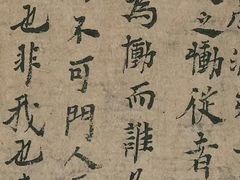 之慟從者
為慟而誰
不可門人
也非我也